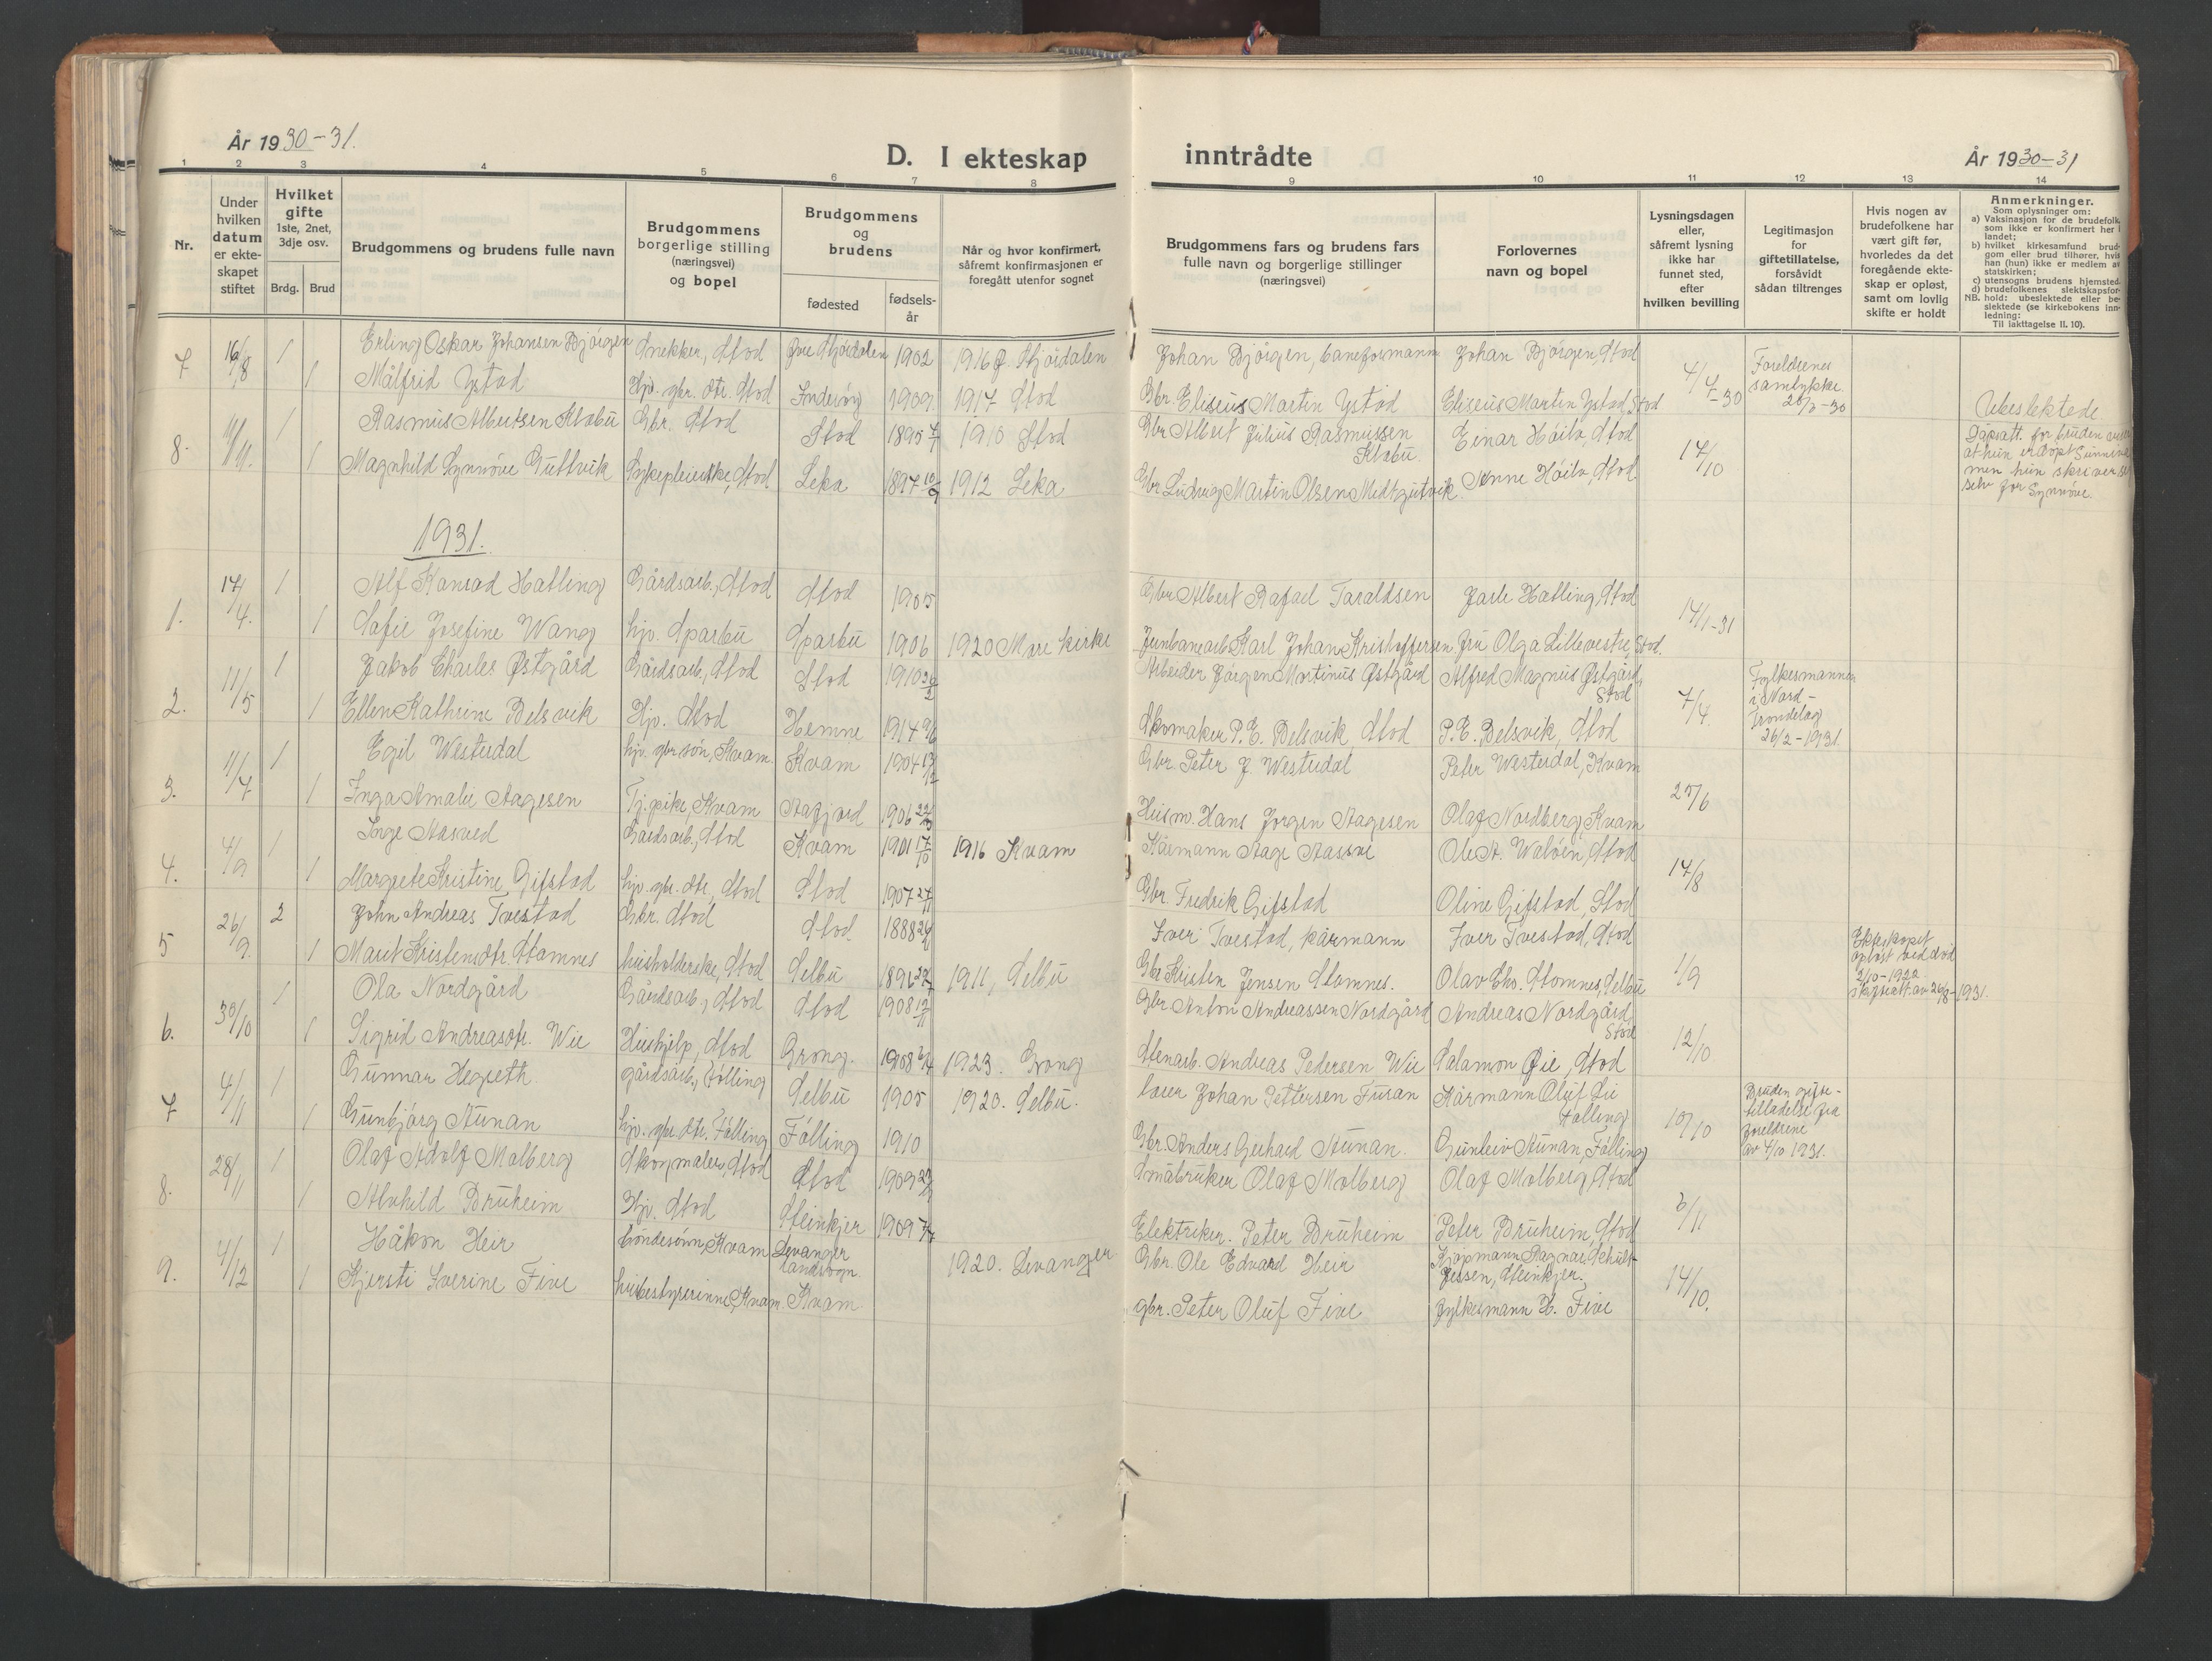 År 1930-31.
D. I ekteskap
inntrådte
År 1930-31
1 2 3 4 5 6 7 8 9 10 11 12 13 14
Nr.
Under
hvilken
datum
er ekte-
skapet
stiftet
Hvilket
gifte
1ste, 2net,
3dje osv.
Brdg. Brud
Brudgommens og brudens fulle navn
Brudgommens
borgerlige stilling
(næringsvei)
og bopel
Brudgommens
og
brudens
fødested
fødsels-
år
Når og hvor konfirmert,
såfremt konfirmasjonen er
foregått utenfor sognet
Brudgommens fars og brudens fars
fulle navn og borgerlige stillinger
(næringsvei)
Forlovernes
navn og bopel
Lysningsdagen
eller,
såfremt lysning
ikke har
funnet sted,
efter
hvilken bevilling
Legitimasjon
for
giftetillatelse,
forsåvidt
sådan tiltrenges
Hvis nogen av
brudefolkene har
vært gift før,
hvorledes da det
foregående ekte-
skap er opløst,
samt om lovlig
skifte er holdt
Anmerkninger.
Som oplysninger om:
a) Vaksinasjon for de brudefolk,
som ikke er konfirmert her i
landet;
b) hvilket kirkesamfund brud-
gom eller brud tilhører, hvis
han (hun) ikke er medlem av
statskirken;
c) utensogns brudens hjemsted.
d) brudefolkenes slektskapsfor-
NB. hold: ubeslektede eller be-
slektede (se kirkebokens inn-
ledning:
Til iakttagelse II. 10).
7 16/8 1 Erling Oskar Johansen Bjørgen Snekker, Stod Øvre Stjørdalen 1902 1916 Ø. Stjørdalen Johan Bjørgen, baneformann Johan Bjørgen, Stod 4/4-30 Foreldrenes
samtykke
28/3-30
1 Målfrid Ystad Hjv. gbr. dtr. Stod Inderøy 1909 1917 Stod Gbr. Eliseus Martin Ystad Eliseus Martin Ystad, Stod Ubeslektede
8. 11/11. 1 Rasmus Albertsen Klabu Gbr. Stod Stod 1895 1910 Stod Gbr Albert Julius Rasmussen
Klabu Einar Høilo, Stod 14/10 Dåpsatt. for bruden viser
at hun er døpt Sunniva
men hun skriver seg
selv for Synnøve.
1 Magnhild Synnøve Guttvik Sykepleierske, Stod Leka 1897 10/9 1912 Leka Gbr Ludvig Martin Olsen Midtgutvik. Anne Høilo, Stod
1931.
1. 14/4. 1 Alf Konrad Hatling Gårdsarb., Stod Stod 1905 Gbr Albert Rafael Taraldsen Jarle Hatling, Stod 14/1-31
1 Sofie Josefine Wang hjv. Sparbu Sparbu 1906 1920 Mære kirke Jernbanearb Karl Johan Kristoffersen Fru Olga Lillevestre, Stod.
2. 11/5 1 Jakob Charles Østgård Gårdsarb., Stod Stod 1910 Arbeider Jørgen Martinus Østgård Alfred Magnus Østgård,
Stod 7/4. Fylkesmannen
i Nord-
Trøndelag
26/2-1931.
1 Ellen Katherine Belsvik Hjv. Stod Hemne 1914 9/6 Skomaker P. E. Belsvik, Stod P. E. Belsvik, Stod
3. 11/7 1 Egil Westerdal hjv. gbr. søn, Kvam. Kvam 1904 13/12 Gbr Peter J. Westerdal Peter Westerdal, Kvam 27/6
1 Inga Amalie Aagesen Tj. pike, Kvam Aafjord 1906 Husm. Hans Jørgen Aagesen Olaf Nordberg, Kvam
4. 4/9 1 Inge Aasved Gårdsarb., Stod Kvam 1901 17/10 1916 Kvam Kårmann Aage Aasved Ole A. Waløen, Stod 14/8
1 Margrete Kristine Gifstad hjv. gbr. dtr., Stod Stod 1907 27/11 Gbr. Fredrik Gifstad Oline Gifstad, Stod
5 26/9. 2 John Andreas Tvestad Gbr. Stod Stod. 1888 Iver Tvestad, kårmann Iver Tvestad, Stod 1/9 Ekteskapet
opløst ved død
2/10-1922
skifteatt. av 26/8-1931.
1 Marit Kristensdtr. Stamnes husholderske, Stod Selbu 1896 1911, Selbu Gbr Kristen Jensen Stamnes. Olav Chr. Stamnes, Selbu
6. 30/10 1 Ola Nordgård Gårdsarb., Stod Stod 1908 Gbr Anton Andreassen Nordgård Andreas Nordgård,
Stod 12/10
1 Sigrid Andreasdtr. Wie Hushjelp, Stod Grong. 1908 1923. Grong Stenarb. Andreas Pedersen Wie Salamon Øie, Stod
7 4/11 1 Gunnar Hegseth. gårdsarb., Følling Selbu 1905 1920. Selbu. Johan Pettersen Furan Kårmann Oluf Lie
Følling 10/10 Bruden gifte-
tilladelse fra
foreldrene
av 4/10 1931.
1 Gunbjørg Aunan hjv. gbr. dtr. Følling Følling 1910 Gbr. Anders Gerhard Aunan. Gunleiv Aunan, Følling
8. 28/11 1 Olaf Adolf Molberg Skogmaler, Stod Stod 1909 Småbruker Olaf Molberg Olaf Molberg, Stod 6/11
1 Alvhild Bruheim Hjv. Stod Steinkjer 1909 Elektriker. Peter Bruheim Peter Bruheim, Stod
9. 4/12 1 Håkon Heir bondesønn, Kvam Levanger
landsogn 1920. Levanger Gbr. Ole Edvard Heir Kjøpmann Ragnar Schult-
Jessen, Steinkjer. 14/10.
1 Kjersti Sverine Five husbestyrerinne, Kvam. Kvam. gbr. Peter Oluf Five fylkesmann H. Five